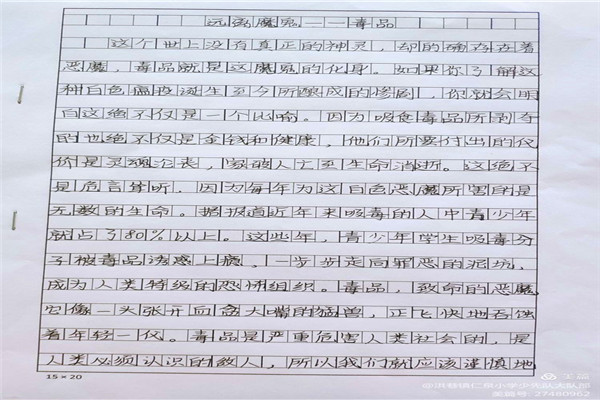 远离魔鬼——毒品
这个世上没有真正的神灵，却的确存在着
恶魔，毒品就是这魔鬼的化身。如果你了解这
种白色瘟疫诞生至今所酿成的惨剧，你就会明
白这绝不仅是一个比喻。因为吸食毒品所剥夺
的也绝不仅是金钱和健康，他们所要付出的代
价是灵魂沦丧，家破人亡至生命消逝。这绝不
是危言耸听，因为每年为这白色恶魔所害的是
无数的生命。据报道近年来吸毒的人中青少年
就占了80%以上。这些年，青少年学生吸毒分
子被毒品诱惑上瘾，一步步走向罪恶的泥坑，
成为人类特级的恐怖组织。毒品，致命的恶魔
它像一头张开血盆大嘴的猛兽，正飞快地吞蚀
着年轻一代。毒品是严重危害人类社会的，是
人类必须认识的敌人，所以我们就应该谨慎地
15×20
美篇号：27480962